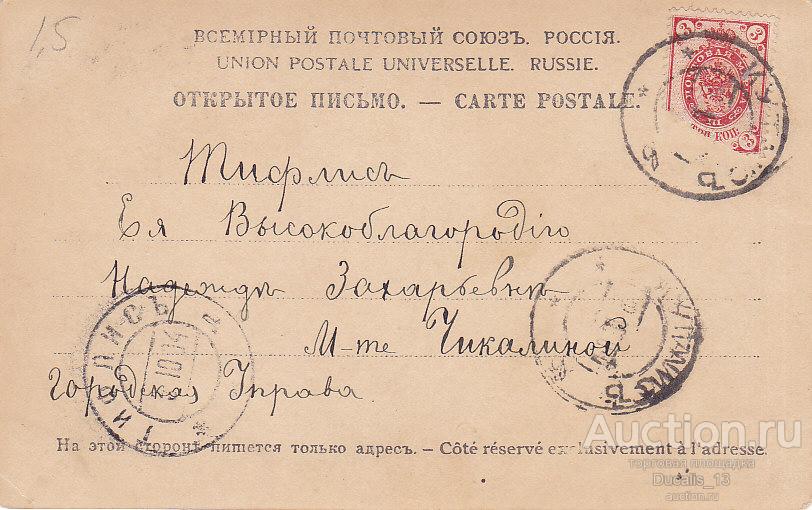 1,5
ВСЕМІРНЫЙ ПОЧТОВЫЙ СОЮЗЪ. РОССІЯ.
UNION POSTALE UNIVERSELLE. RUSSIE.
ОТКРЫТОЕ ПИСЬМО. — CARTE POSTALE.
3 3
ПОЧТОВАЯ
три КОП. 3
КУТАИСЪ
Тифлисъ
Ея Высокоблагородію
Надеждѣ Захарьевнѣ
М-me Чикалиной
Городская Управа
ТИФЛИСЪ
На этой сторонѣ пишется только адресъ. — Côté réservé exclusivement à l'adresse.
Auction.ru
торговая площадка
Ducalis_13
auction.ru